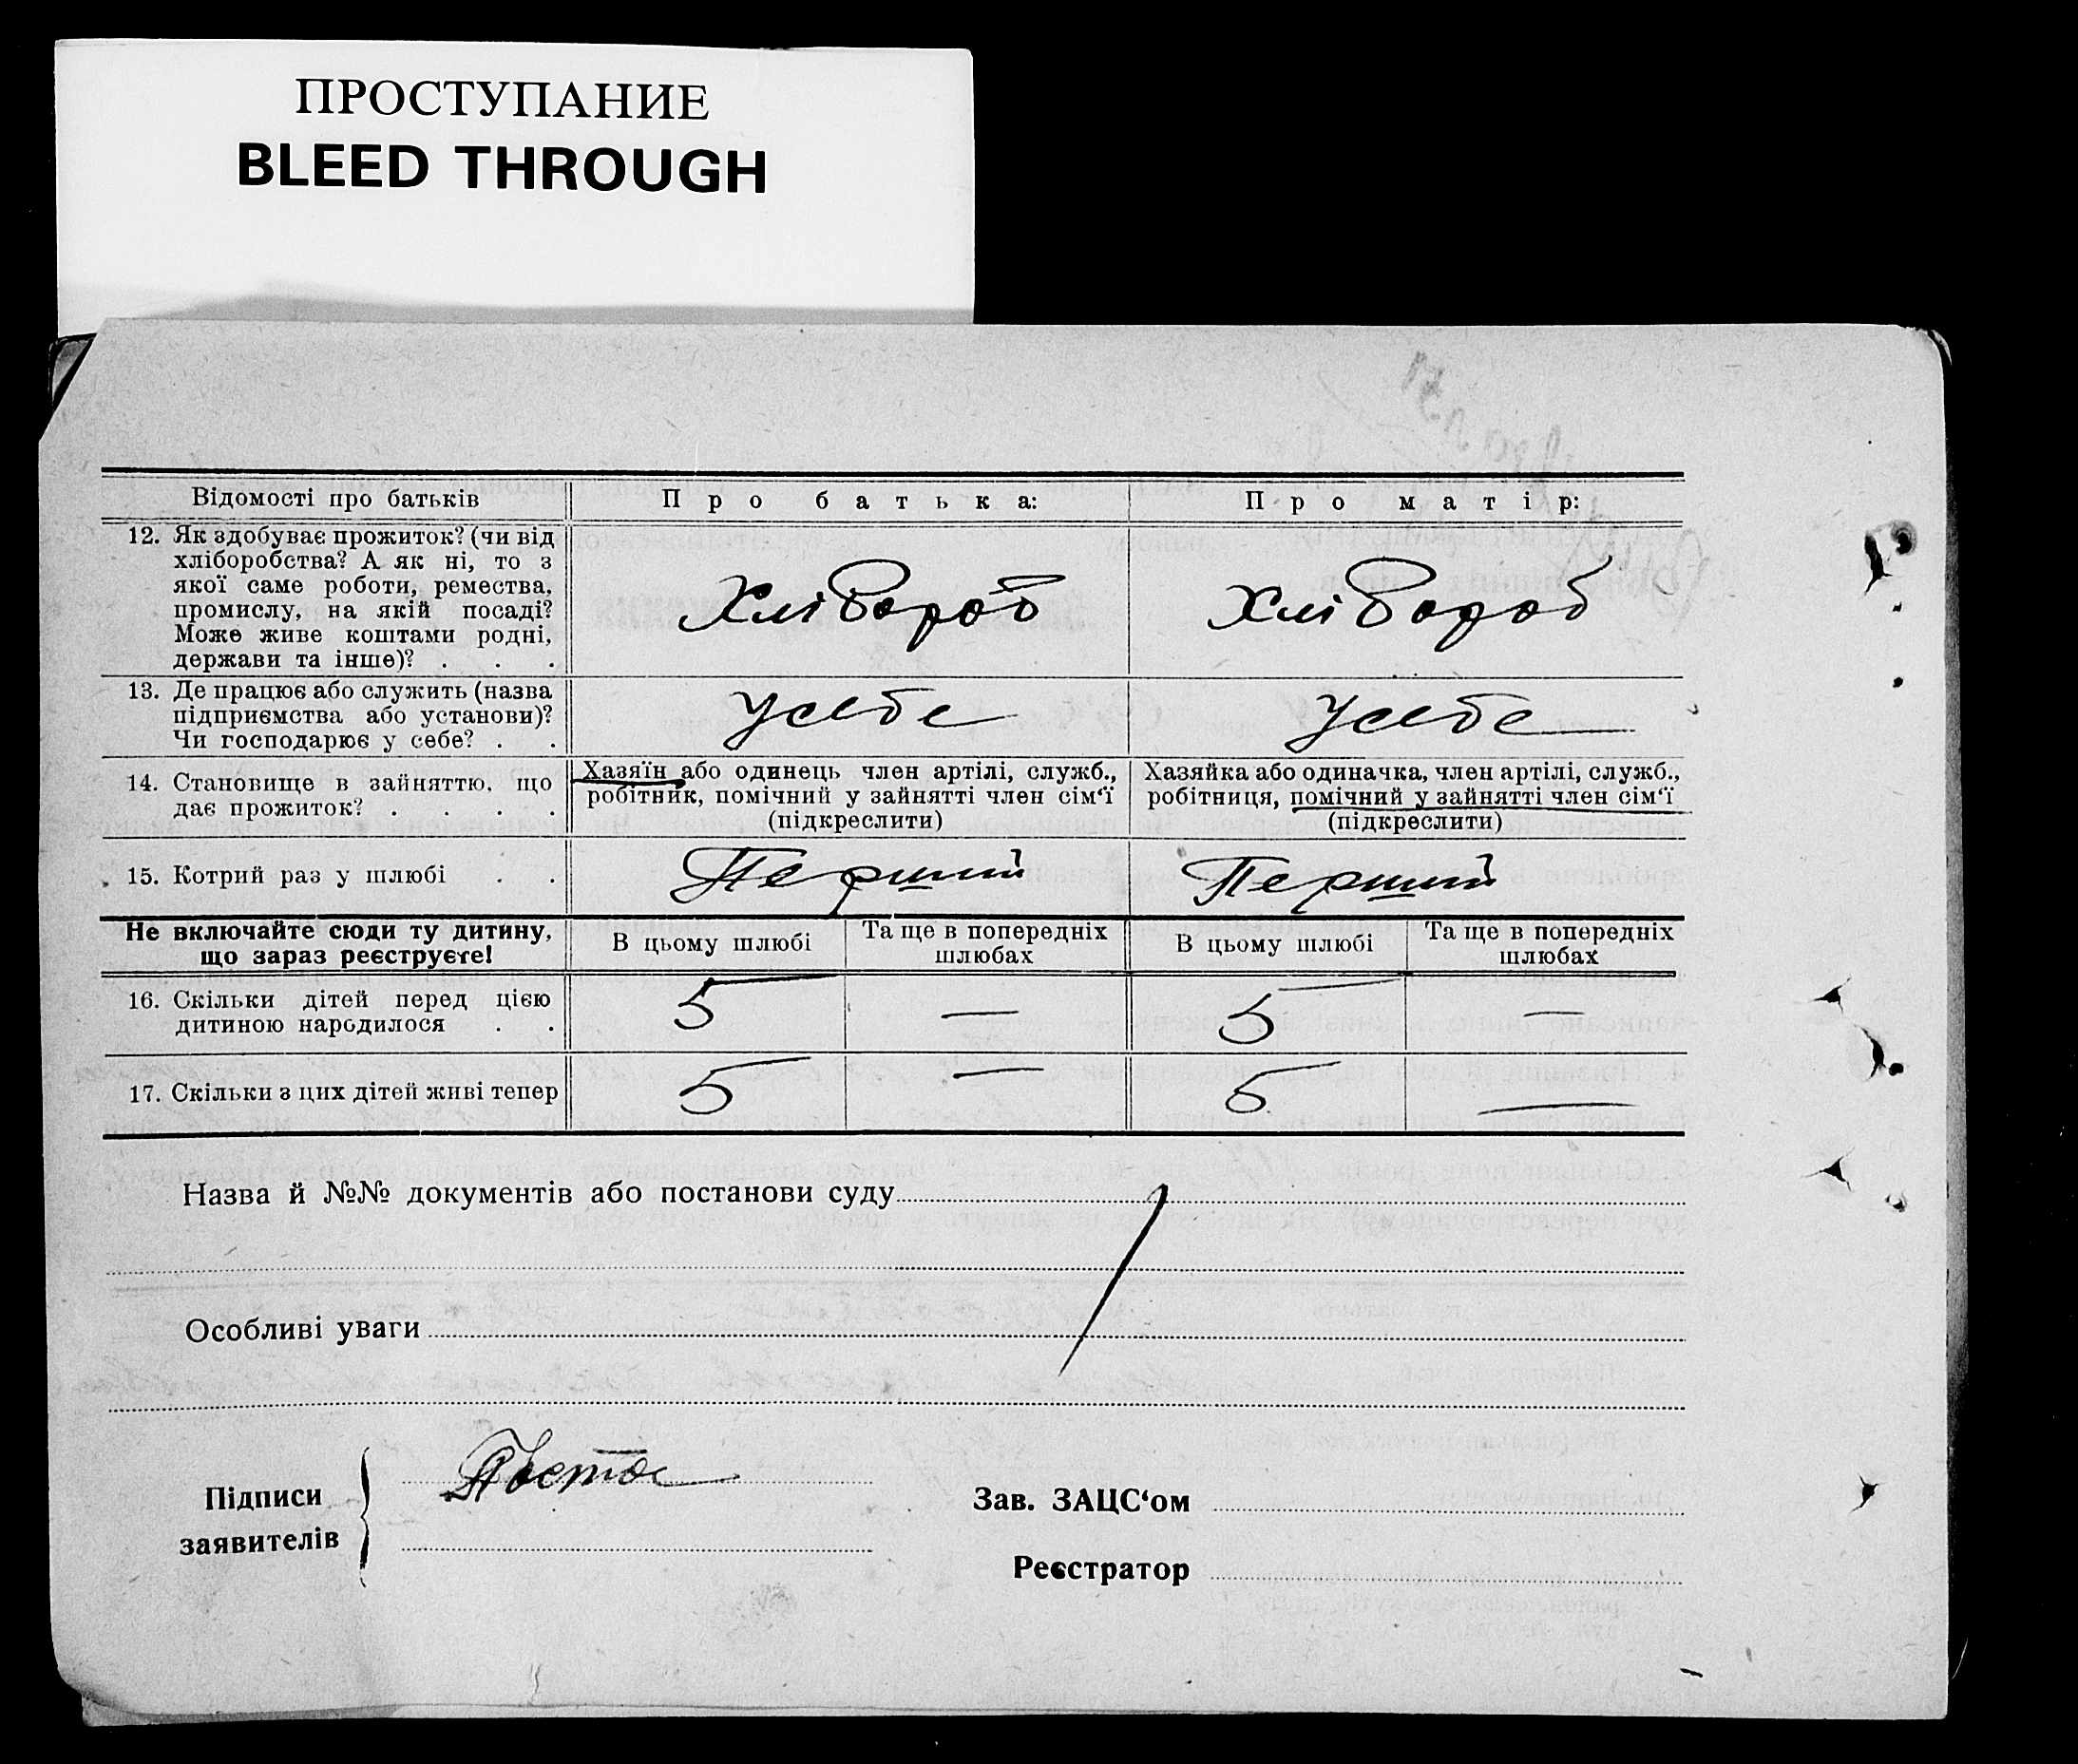 ПРОСТУПАНИЕ
BLEED THROUGH
Відомості про батьків Про батька: Про матір:
12. Як здобуває прожиток? (чи від
хліборобства? А як ні, то з
якої саме роботи, ремества,
промислу, на якій посаді?
Може живе коштами родні,
держави та інше)? . . .
Хлібороб Хлібороб
13. Де працює або служить (назва
підприємства або установи)?
Чи господарює у себе? . .
Усебе Усебе
14. Становище в зайняттю, що
дає прожиток? . . . .
Хазяїн або одинець член артілі, служб.,
робітник, помічний у зайнятті член сім‘ї
(підкреслити)
Хазяйка або одиначка, член артілі, служб.,
робітниця, помічний у зайнятті член сім‘ї
(підкреслити)
15. Котрий раз у шлюбі . . Перший Перший
Не включайте сюди ту дитину,
що зараз реєструєте!
В цьому шлюбі Та ще в попередніх
шлюбах
В цьому шлюбі Та ще в попередніх
шлюбах
16. Скільки дітей перед цією
дитиною народилося . .
5 — 5 —
17. Скільки з цих дітей живі тепер 5 — 5 —
Назва й №№ документів або постанови суду
Особливі уваги
Підписи
заявителів
Зав. ЗАЦС‘ом
Реєстратор